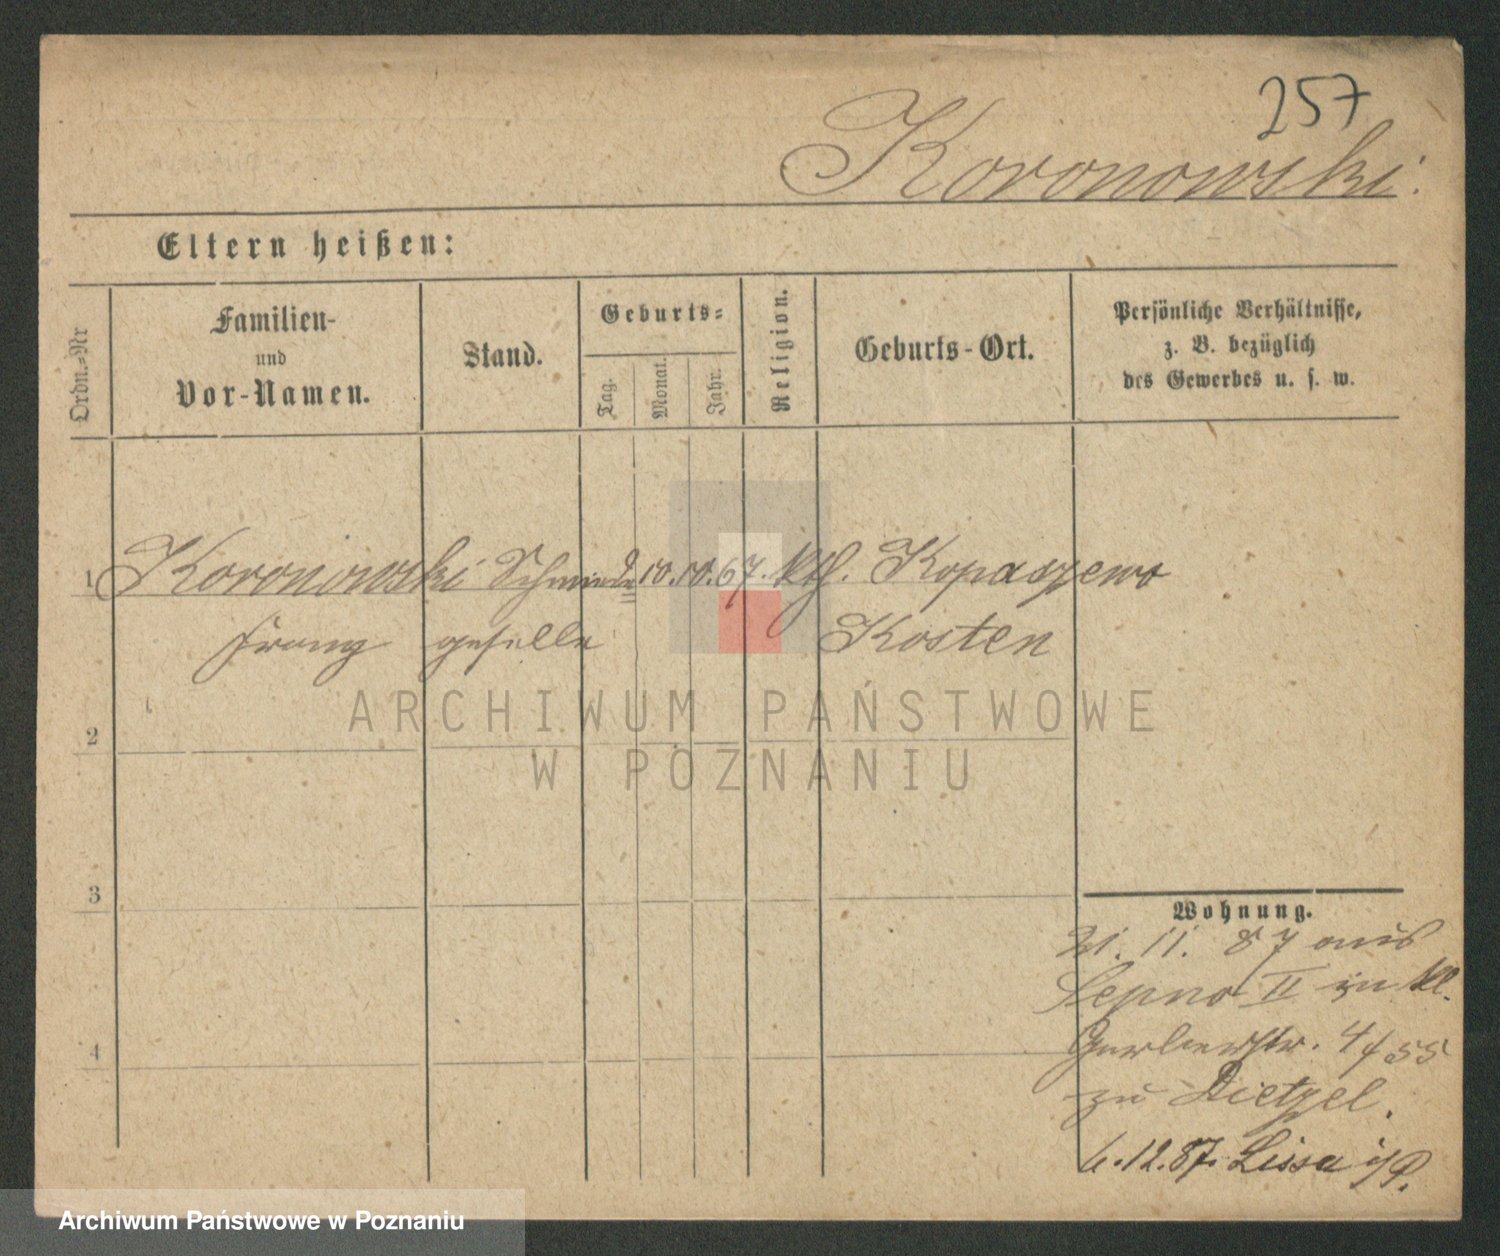 257
Koronowski.
Eltern heißen:
Ordn.-Nr
Familien-
und
Vor-Namen.
Stand.
Geburts-
Tag.
Monat.
Jahr.
Religion.
Geburts-Ort.
Persönliche Verhältnisse,
z. B. bezüglich
des Gewerbes u. s. w.
1 Koronowski Schmiede 10. 10. 67. kth. Kopaszewo
Franz geselle Kosten
2
3
4
Wohnung.
21. 11. 87 aus
Sepno II in kl.
Gerberstr. 4/55
zu Dietzel.
6. 12. 87. Lissa i/P.
ARCHIWUM PAŃSTWOWE
W POZNANIU
Archiwum Państwowe w Poznaniu